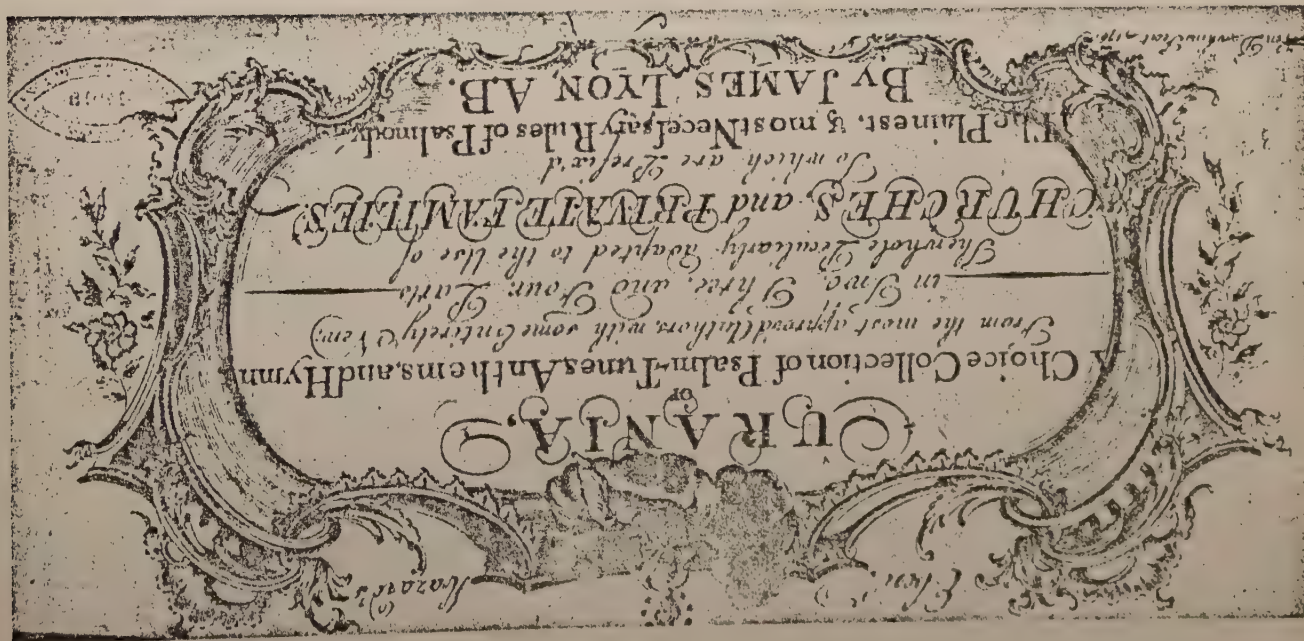 Eben Hazard's
URANIA,
OR
A Choice Collection of Psalm-Tunes, Anthems, and Hymn
From the most approv'd Authors, with some Entirely New;
in Two, Three, and Four, Parts
The whole Peculiarly Adapted to the Use of
CHURCHES, and PRIVATE FAMILIES.
To which are Prefix'd
The Plainest, & most Neceſsary Rules of Psalmody.
By JAMES LYON, A.B.